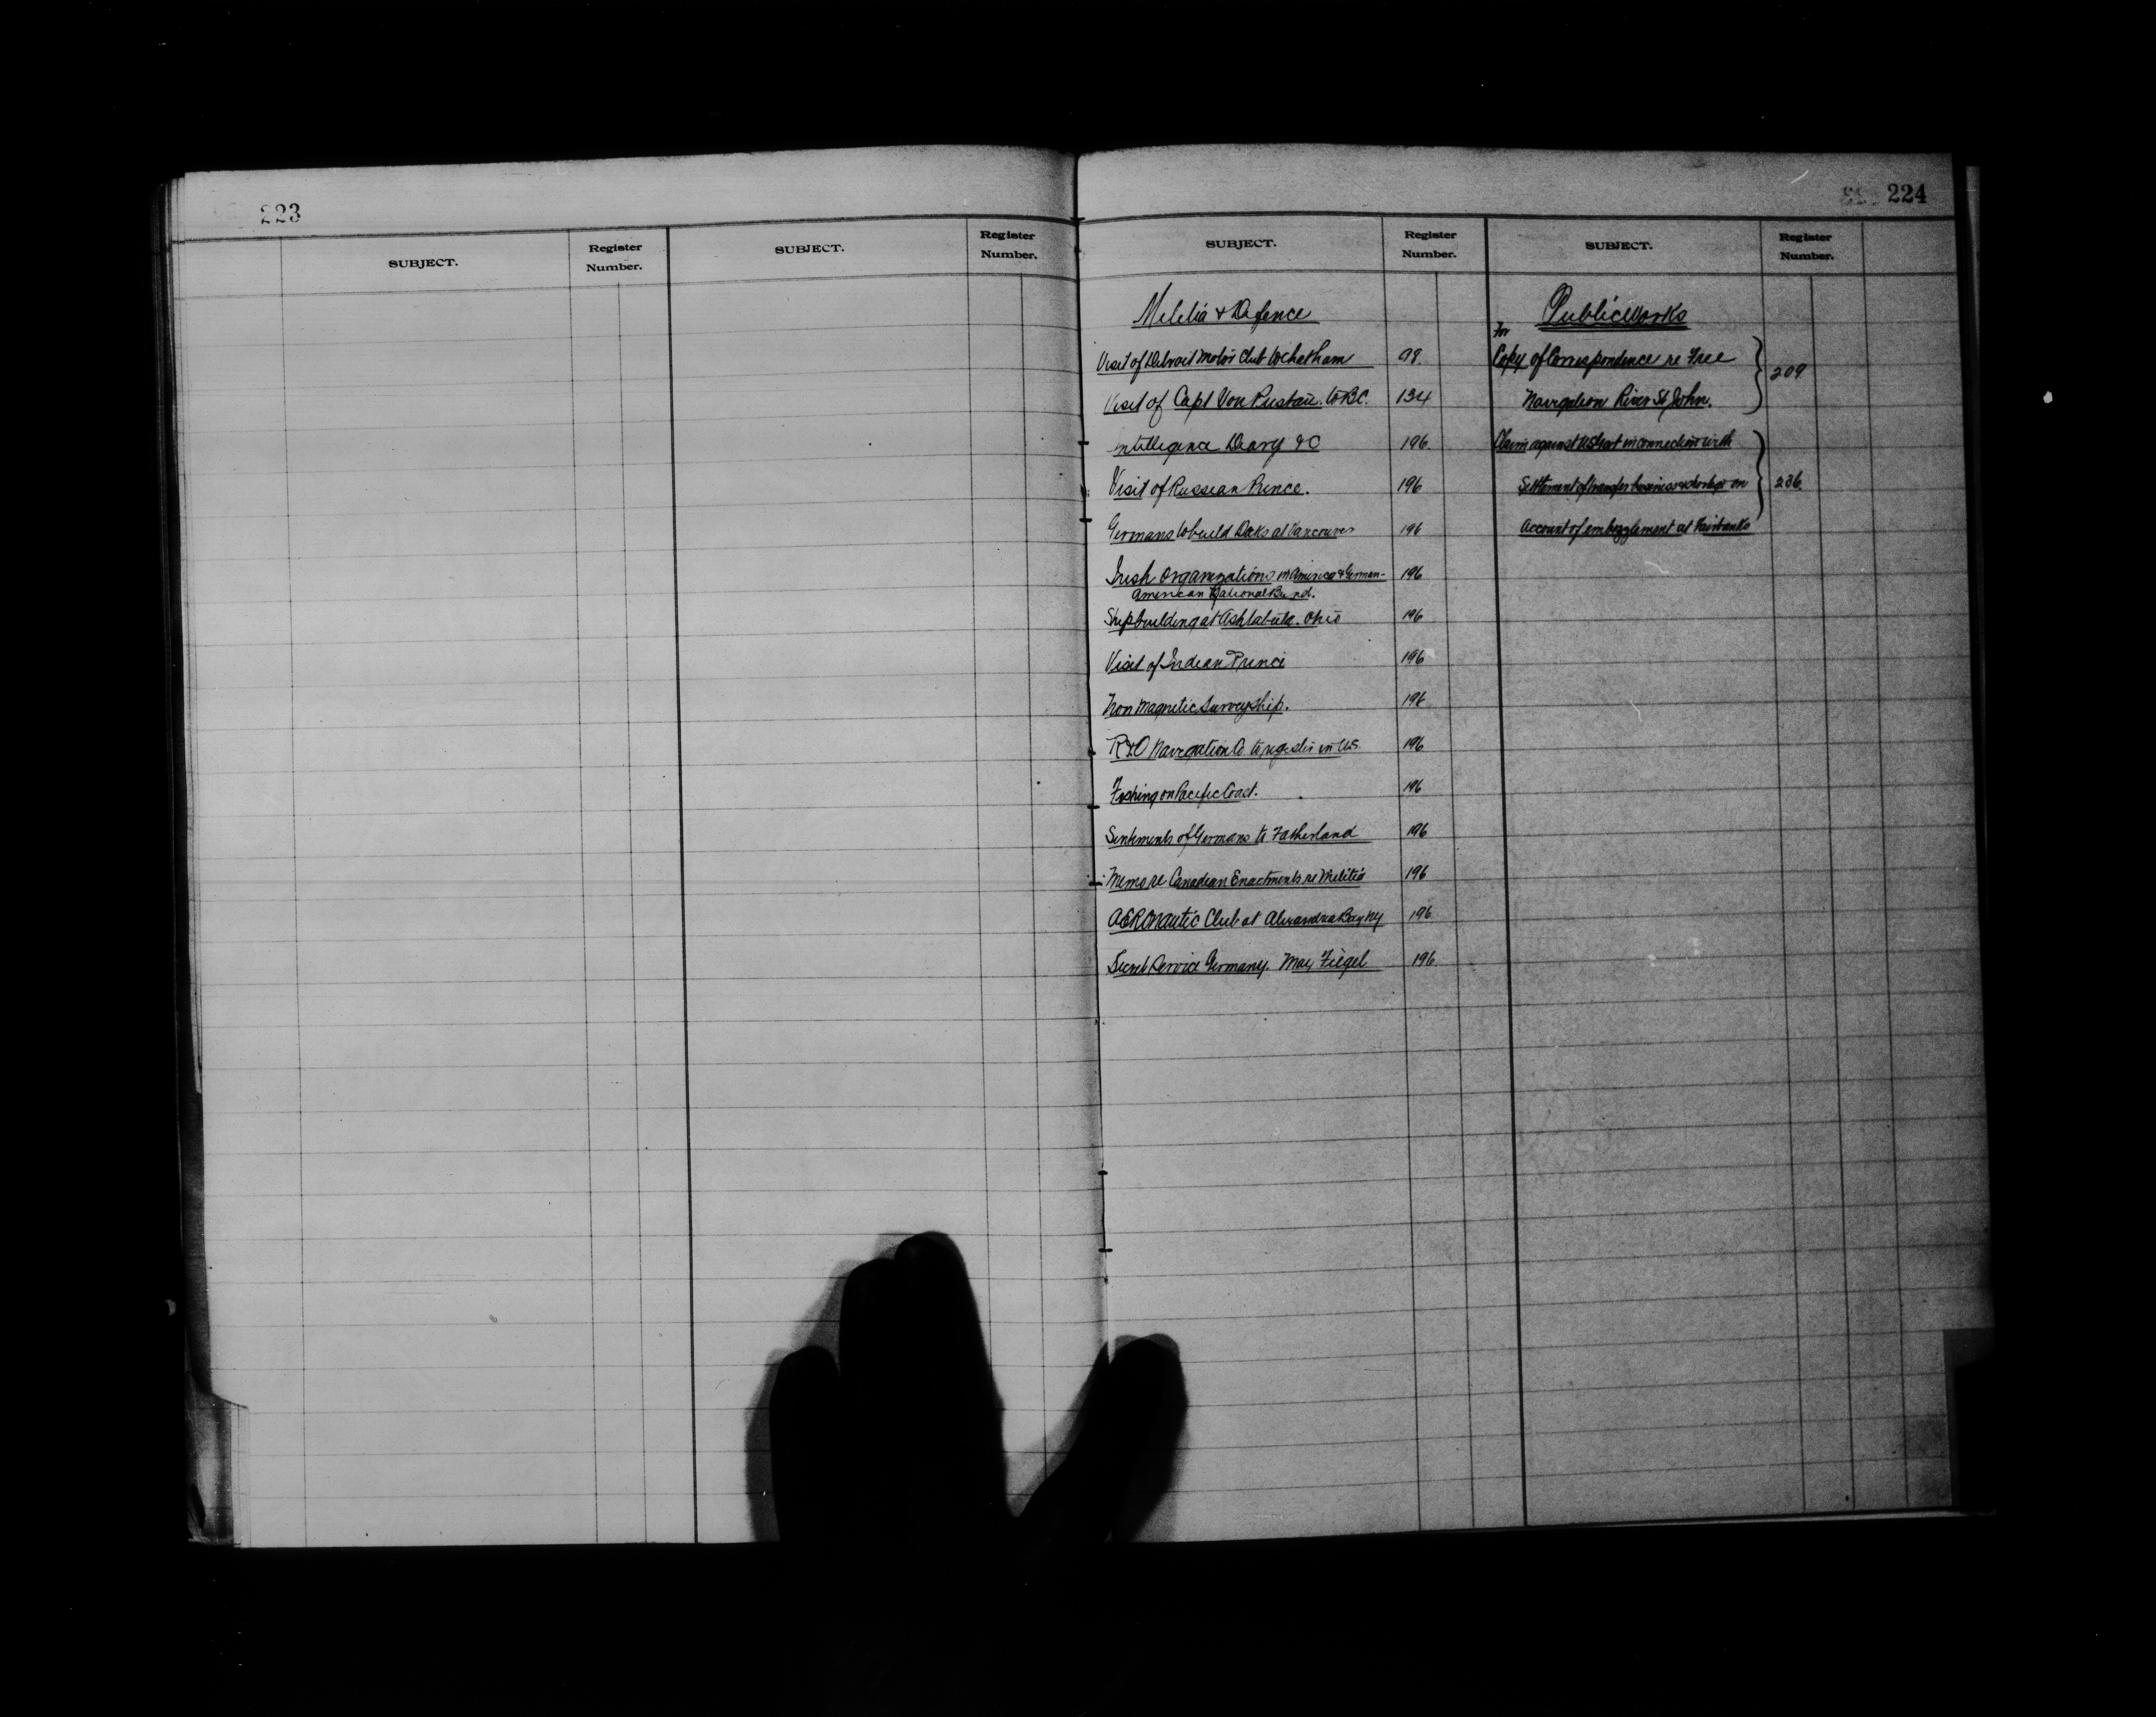 223
SUBJECT.
Register Number.
SUBJECT.
Register Number.
224
SUBJECT.
Register Number.
SUBJECT.
Register Number.
Militia & Defence
Visit of Detroit Motor Club to Chatham 98.
Visit of Capt Von Pustau. to B.C. 134
Intelligence Diary &C 196.
Visit of Russian Prince. 196
Germans to build Docks at Vancouver 196
Irish Organizations in America & German- 196
American National Bund.
Shipbuilding at Ashtabula. Ohio 196
Visit of Indian Prince 196
Non Magnetic Survey Ship. 196
R & O Navigation Co. to register in U.S. 196
Fishing on Pacific Coast. 196
Sentiments of Germans to Fatherland 196
Memo re Canadian Enactments re Militia 196
AERONautic Club at Alexandria Bay NY 196
Secret Service Germany. Max Fiegel 196
Public Works
For
Copy of Correspondence re Free
Navigation River St John. 209
Claim against US Govt in connection with
Settlement of transfer business on 236
Account of embezzlement at Fairbanks